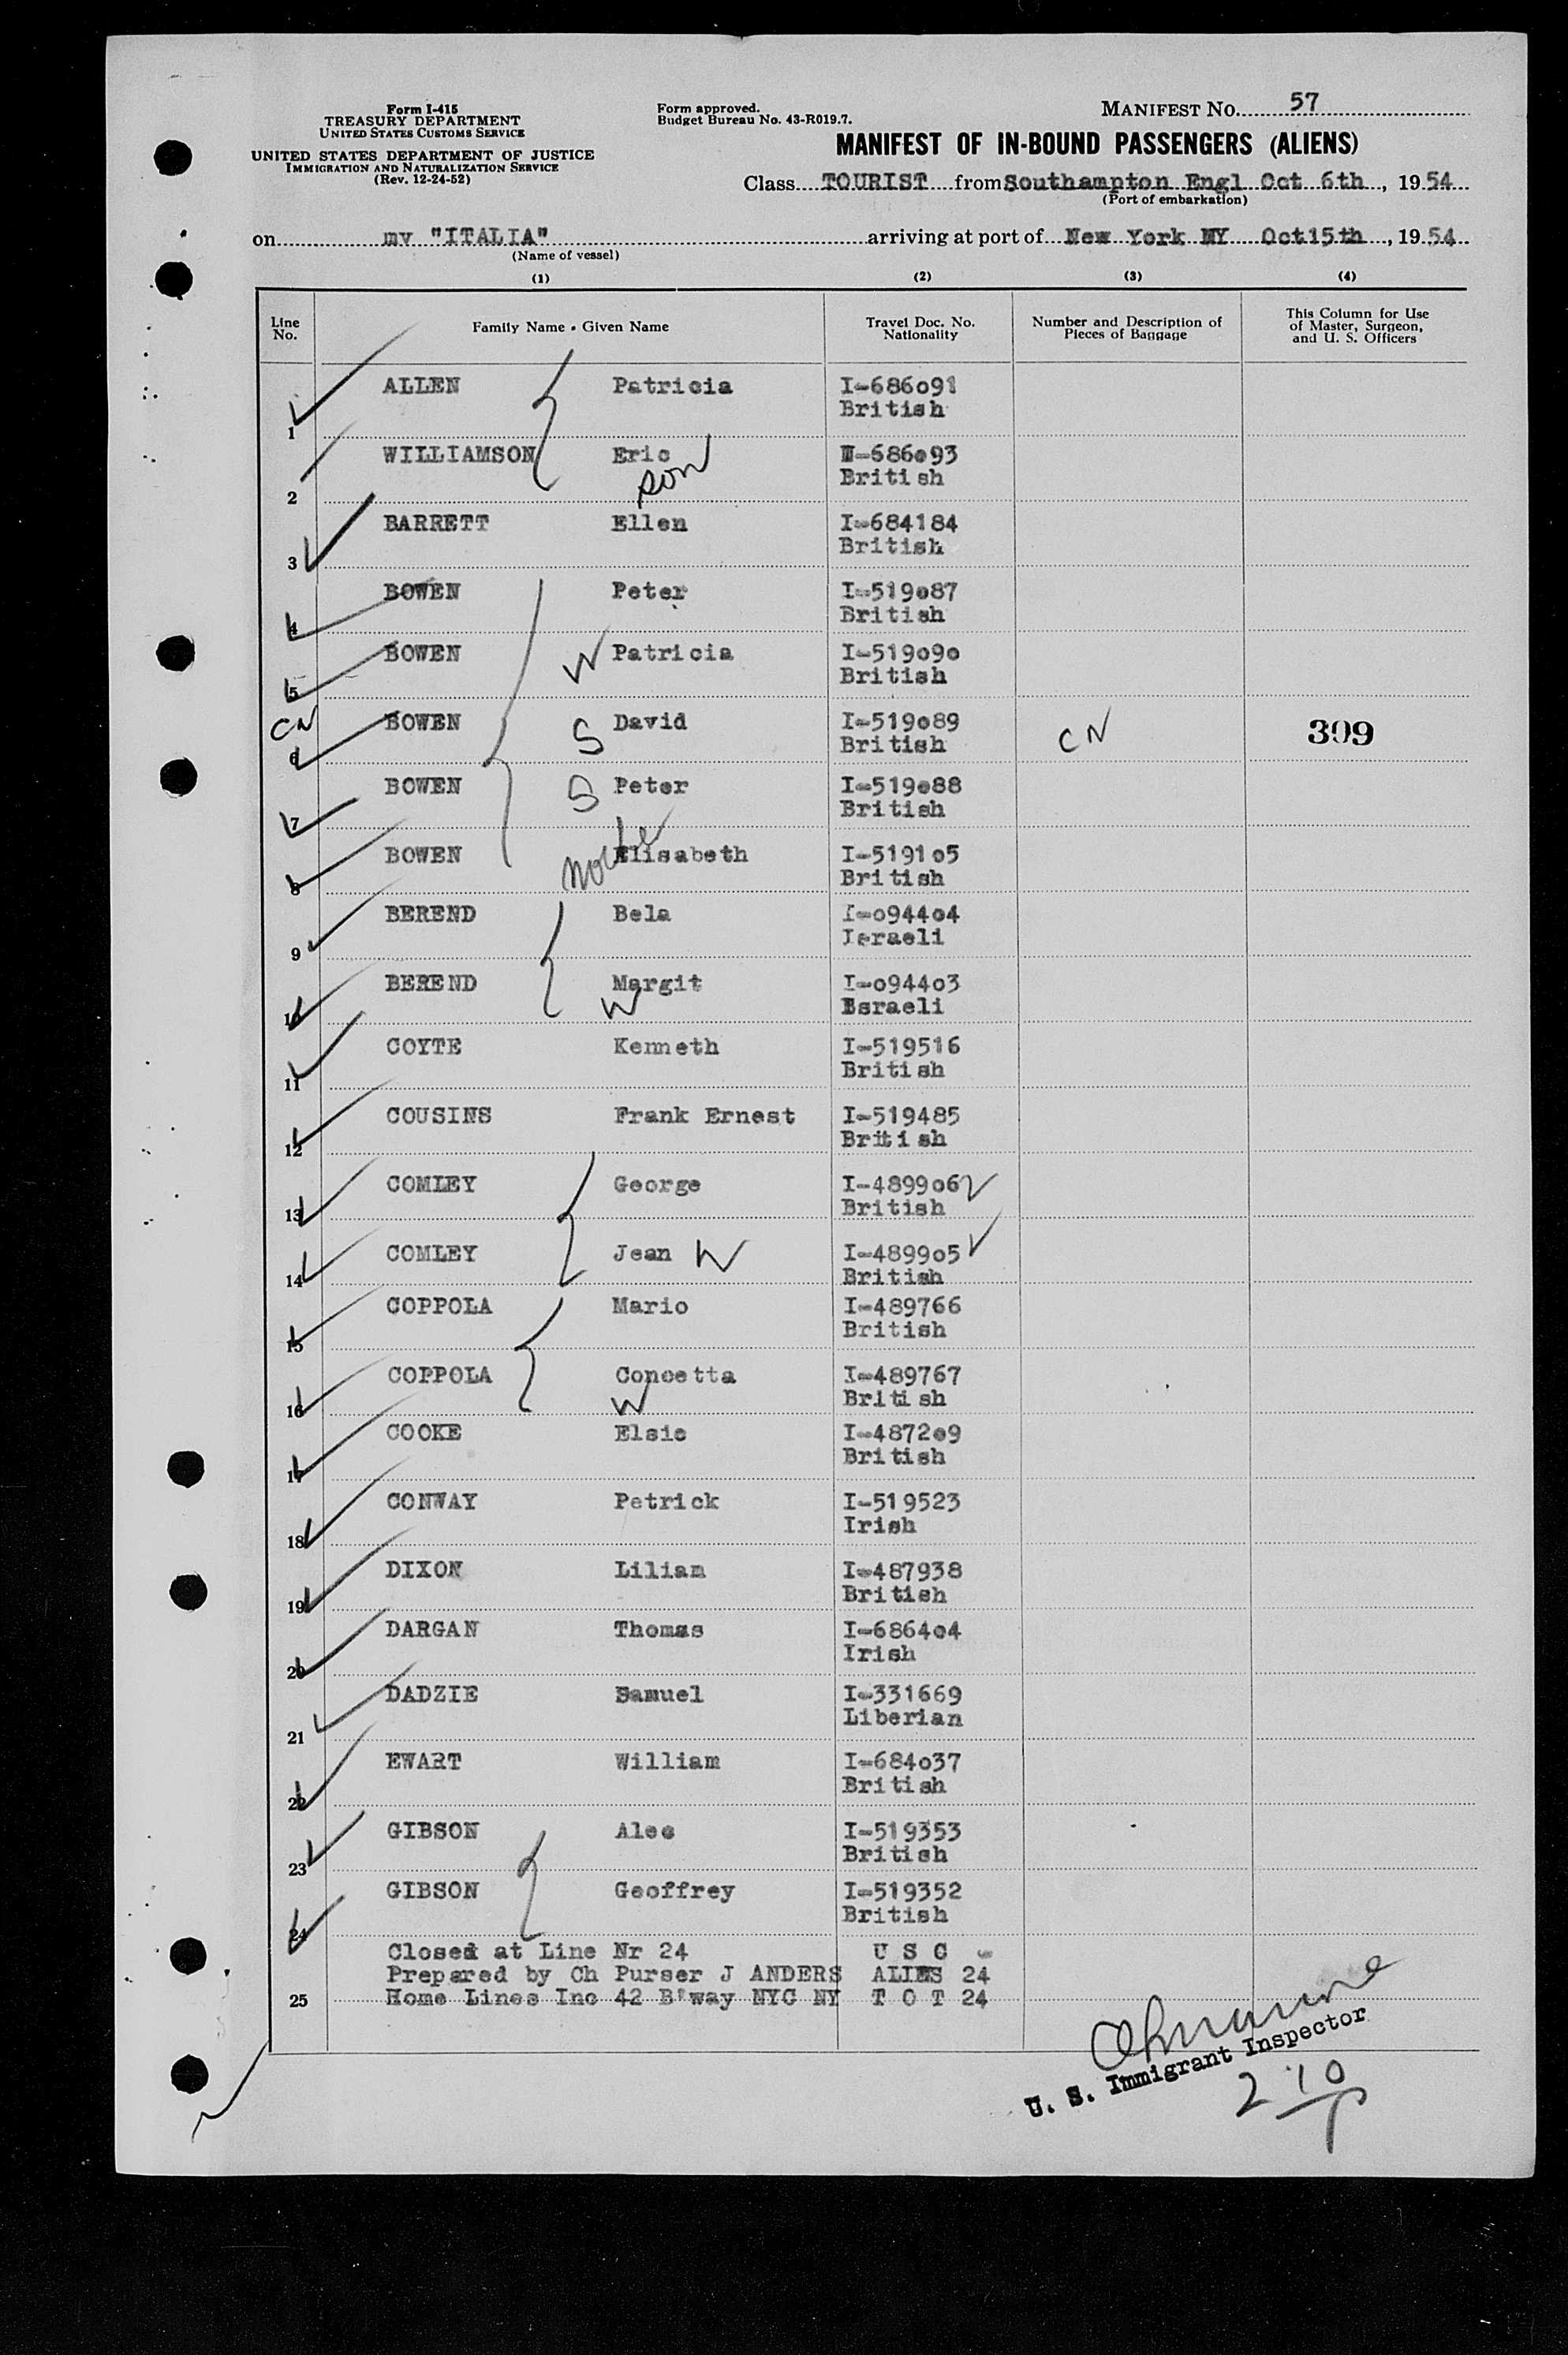 Form I-415
TREASURY DEPARTMENT
UNITED STATES CUSTOMS SERVICE
UNITED STATES DEPARTMENT OF JUSTICE
IMMIGRATION AND NATURALIZATION SERVICE
(Rev. 12-24-52)
Form approved.
Budget Bureau No. 43-R019.7.
MANIFEST No. 57
MANIFEST OF IN-BOUND PASSENGERS (ALIENS)
Class TOURIST from Southampton Engl Oct 6th, 1954
(Port of embarkation)
on mv "ITALIA" arriving at port of New York NY Oct 15th, 1954
(Name of vessel)
(1) (2) (3) (4)
Line No. Family Name - Given Name Travel Doc. No. Nationality Number and Description of Pieces of Baggage This Column for Use of Master, Surgeon, and U. S. Officers
1 ALLEN Patricia I-686o91
British
2 WILLIAMSON Eric son I-686o93
British
3 BARRETT Ellen I-684184
British
4 BOWEN Peter I-519o87
British
5 BOWEN W Patricia I-519o9o
British
CN 6 BOWEN S David I-519o89 CN 309
British
7 BOWEN S Peter I-519o88
British
8 BOWEN Elisabeth I-5191o5
British
9 BEREND Bela I-o944o4
Israeli
10 BEREND Margit W I-o944o3
Esraeli
11 COYTE Kenneth I-519516
British
12 COUSINS Frank Ernest I-519485
British
13 COMLEY George I-4899o6
British
14 COMLEY Jean W I-4899o5
British
15 COPPOLA Mario I-489766
British
16 COPPOLA Concetta W I-489767
British
17 COOKE Elsie I-4872o9
British
18 CONWAY Patrick I-519523
Irish
19 DIXON Lilian I-487938
British
20 DARGAN Thomas I-6864o4
Irish
21 DADZIE Samuel I-331669
Liberian
22 EWART William I-684o37
British
23 GIBSON Alec I-519353
British
24 GIBSON Geoffrey I-519352
British
Closed at Line Nr 24 U S C -
Prepared by Ch Purser J ANDERS ALIES 24
25 Home Lines Inc 42 B'way NYC NY T O T 24
U. S. Immigrant Inspector